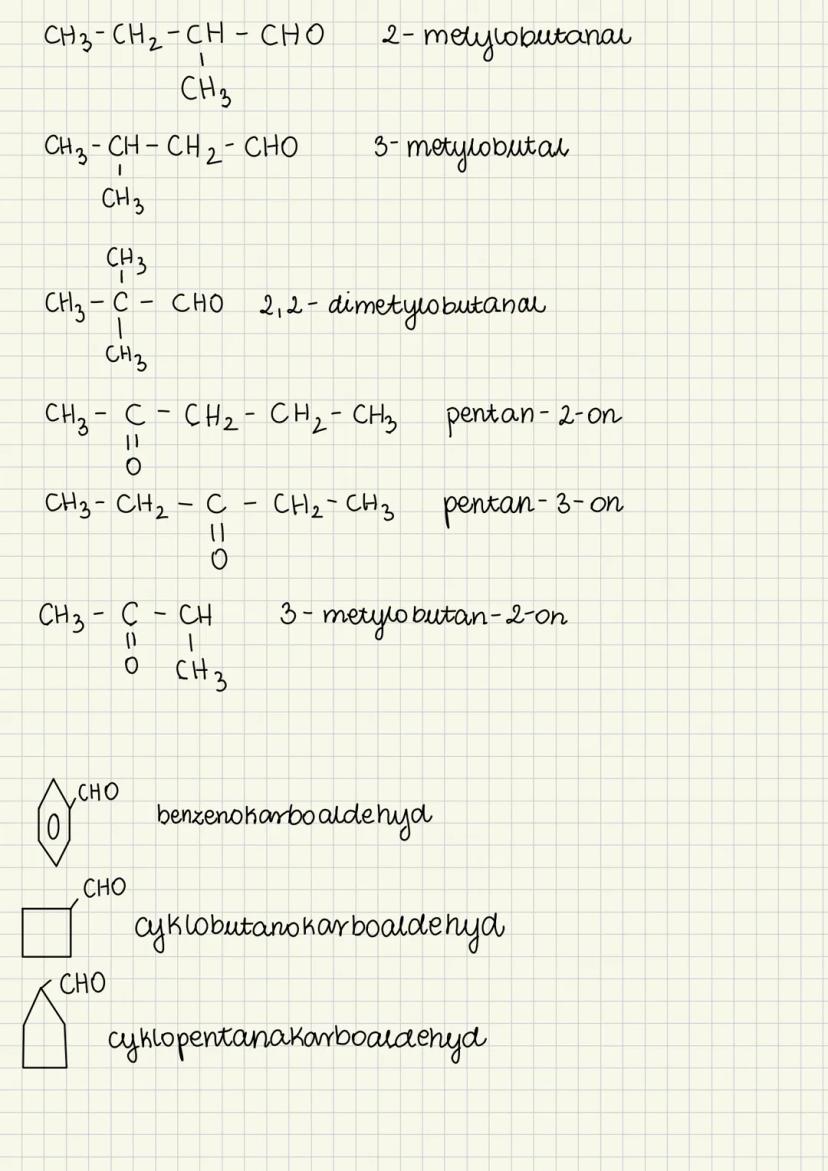 CH3 - CH2 - CH - CHO 2-metylobutanal
CH3
CH3 - CH - CH2 - CHO 3-metylobutal
CH3
CH3
CH3 - C - CHO 2,2-dimetylobutanal
CH3
CH3 - C - CH2 - CH2 - CH3 pentan-2-on
O
CH3 - CH2 - C - CH2 - CH3 pentan-3-on
O
CH3 - C - CH 3-metylobutan-2-on
O CH3
CHO
benzenokarboaldehyd
CHO
cyklobutanokarboaldehyd
CHO
cyklopentanakarboaldehyd